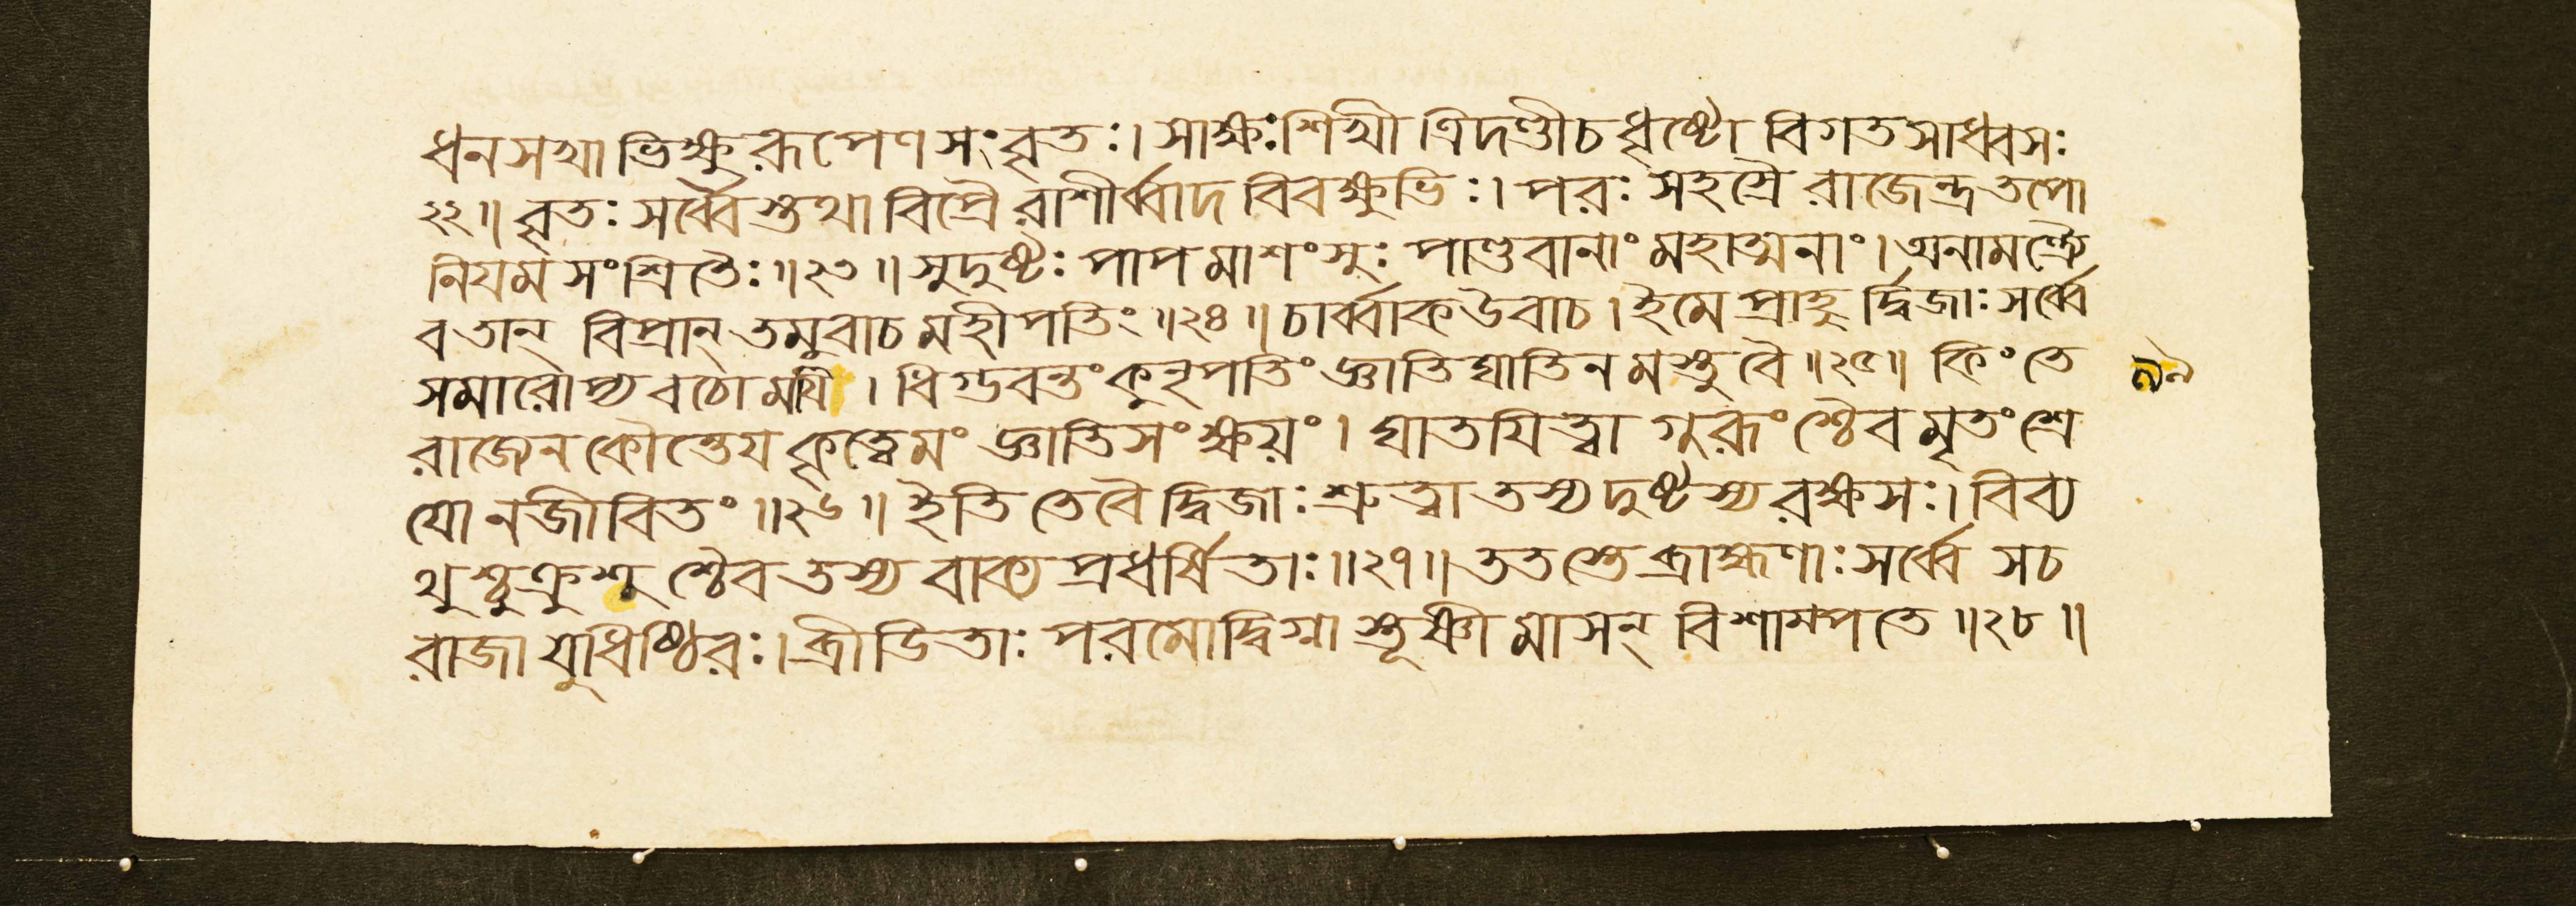 ধনসখা ভিক্ষুরূপেণ সংবৃতঃ। সাক্ষঃ শিখী ত্রিদণ্ডী চ ধৃষ্টো বিগতসাধ্বসঃ
২২॥ বৃতঃ সর্ব্বৈস্তথা বিপ্রৈরাশীর্ব্বাদ বিবক্ষুভিঃ। পরঃ সহস্রৈ রাজেন্দ্র তপো
নিযমসংশ্রিতৈঃ॥২৩॥ সুদুষ্টঃ পাপমাশংসুঃ পাণ্ডবানাং মহাত্মনাং। অনামন্ত্র্যৈ
বতান্ বিপ্রান্ তমুবাচ মহীপতিং॥২৪॥ চার্ব্বাক উবাচ। ইমে প্রাহুর্দ্বিজাঃ সর্ব্বে
সমারোপ্য বচো ময়ি। ধিগ্ভবন্তং কুনৃপতিং জ্ঞাতিঘাতিনমস্তু বৈ॥২৫॥ কিং তে
রাজেন কৌন্তেয কৃত্বেমং জ্ঞাতিসংক্ষয়ং। ঘাতযিত্বা গুরূংশ্চৈব মৃতং শ্রে
যো ন জীবিতং॥২৬॥ ইতি তে বৈ দ্বিজাঃ শ্রুত্বা তস্য দুষ্টস্য রক্ষসঃ। বিব্য
থুশ্চুক্রুশুশ্চৈব তস্য বাক্য প্রধর্ষিতাঃ॥২৭॥ ততস্তে ব্রাহ্মণাঃ সর্ব্বে স চ
রাজা যুধিষ্ঠিরঃ। ব্রীডিতাঃ পরমোদ্বিগ্নাস্তূষ্ণীমাসন্ বিশাম্পতে॥২৮॥